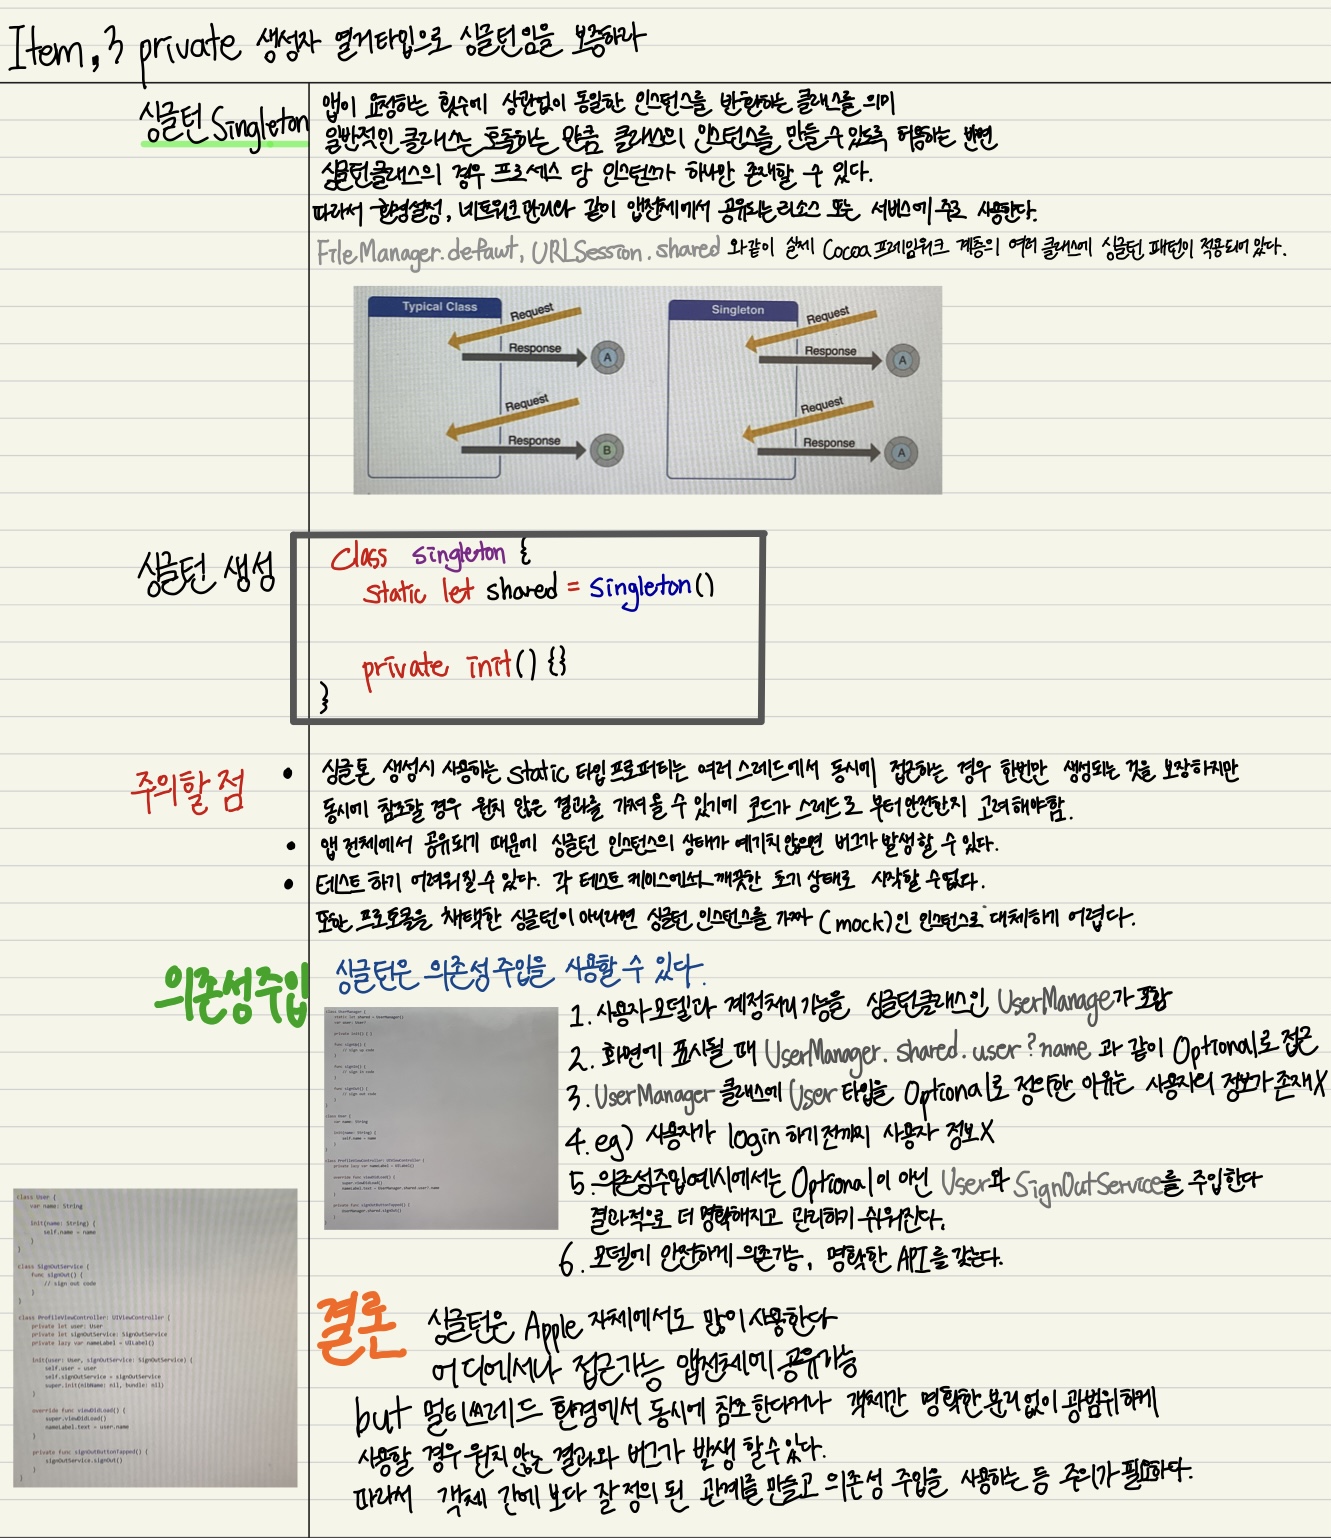 Item.3 private 생성자 열거타입으로 싱글턴임을 보증하라
싱글턴 Singleton
앱이 요청하는 횟수에 상관없이 동일한 인스턴스를 반환하는 클래스를 의미
일반적인 클래스는 호출하는 만큼 클래스의 인스턴스를 만들 수 있도록 허용하는 반면
싱글턴클래스의 경우 프로세스 당 인스턴스가 하나만 존재할 수 있다.
따라서 환경설정, 네트워크 관리와 같이 앱전체에서 공유되는 리소스 또는 서비스에 주로 사용한다.
FileManager.default, URLSession.shared 와 같이 실제 Cocoa 프레임워크 계층의 여러 클래스에 싱글턴 패턴이 적용되어 있다.
Typical Class
Request
Response
A
Request
Response
B
Singleton
Request
Response
A
Request
Response
A
싱글턴 생성
class singleton {
static let shared = singleton()
private init() {}
}
주의할 점
• 싱글톤 생성시 사용하는 static 타입 프로퍼티는 여러 스레드에서 동시에 접근하는 경우 한번만 생성되는 것을 보장하지만
동시에 참조할 경우 원치 않은 결과를 가져올 수 있기에 코드가 스레드로 부터 안전한지 고려해야함.
• 앱 전체에서 공유되기 때문에 싱글턴 인스턴스의 상태가 예기치 않으면 버그가 발생할 수 있다.
• 테스트 하기 어려워질 수 있다. 각 테스트 케이스에서 깨끗한 초기 상태로 시작할 수 없다.
또한 프로토콜을 채택한 싱글턴이 아니라면 싱글턴 인스턴스를 가짜 (mock)인 인스턴스로 대체하기 어렵다.
의존성주입
싱글턴은 의존성 주입을 사용할 수 있다.
class UserManager {
static let shared = UserManager()
var user: User?
private init() { }
func signUp() {
// sign up code
}
func signIn() {
// sign in code
}
func signOut() {
// sign out code
}
}
class User {
var name: String
init(name: String) {
self.name = name
}
}
class ProfileViewController: UIViewController {
private lazy var nameLabel = UILabel()
override func viewDidLoad() {
super.viewDidLoad()
nameLabel.text = UserManager.shared.user?.name
}
private func signOutButtonTapped() {
UserManager.shared.signOut()
}
}
1. 사용자 모델과 계정처리 기능을 싱글턴클래스인 UserManage가 포함
2. 화면에 표시될 때 UserManager.shared.user?name 과 같이 Optional로 접근
3. UserManager 클래스에 User 타입을 Optional로 정의한 이유는 사용자의 정보가 존재X
4. eg) 사용자가 login 하기 전까지 사용자 정보X
5. 의존성주입예시에서는 Optional이 아닌 User와 SignOutService를 주입한다
결과적으로 더 명확해지고 관리하기 쉬워진다.
6. 모델에 안전하게 의존가능, 명확한 API를 갖는다.
class User {
var name: String
init(name: String) {
self.name = name
}
}
class SignOutService {
func signOut() {
// sign out code
}
}
class ProfileViewController: UIViewController {
private let user: User
private let signOutService: SignOutService
private lazy var nameLabel = UILabel()
init(user: User, signOutService: SignOutService) {
self.user = user
self.signOutService = signOutService
super.init(nibName: nil, bundle: nil)
}
override func viewDidLoad() {
super.viewDidLoad()
nameLabel.text = user.name
}
private func signOutButtonTapped() {
signOutService.signOut()
}
}
결론
싱글턴은 Apple 자체에서도 많이 사용한다
어디에서나 접근가능 앱전체에 공유가능
but 멀티쓰레드 환경에서 동시에 참조한다거나 객체간 명확한 분리 없이 광범위하게
사용할 경우 원치 않는 결과와 버그가 발생 할 수 있다.
따라서 객체 간에 보다 잘 정의 된 관계를 만들고 의존성 주입을 사용하는 등 주의가 필요하다.